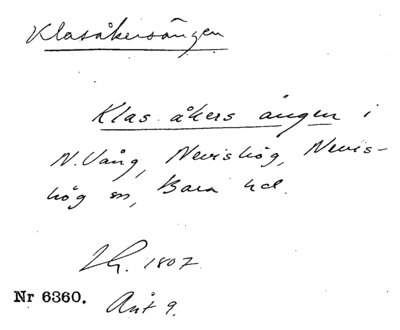 Klasåkersängen
Klas åkers ängen i
N. Vång, Nevishög, Nevis-
hög sn, Bara hd.
1807
Nr 6360. Akt 9.